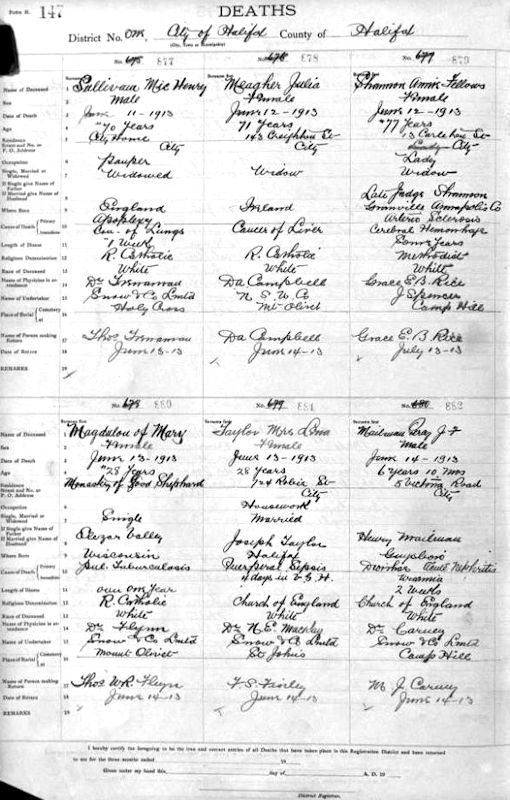 Form H. 147
DEATHS
District No. One, City of Halifax County of Halifax
(City, Town or Municipality)
No. 675 877
No. 676 878
No. 677 879
Name of Deceased
Surname first
Sullivan Mic Henry
Meagher Julia
Shannon Annie Fellows
Sex
Male
Female
Female
Date of Death
June 11-1913
June 12-1913
June 12-1913
Age
70 Years
71 Years
77 Years
Residence Street and No. or P. O. Address
City Home City
143 Creighton St City
73 Carleton St City
Occupation
Pauper
Lady
Single, Married or Widowed
Widowed
Widow
Widow
If Single give Name of Father
If Married give Name of Husband
Late Judge Shannon
Where Born
England
Ireland
Granville Annapolis Co
Cause of Death { Primary Immediate
Apoplexy
Con. of Lungs
Cancer of Liver
Arterio Sclerosis
Cerebral Hemorrhage
Length of Illness
1 Week
Some Years
Religious Denomination
R. Catholic
R. Catholic
Methodist
Race of Deceased
White
White
White
Name of Physician in attendance
Dr Trenaman
Da Campbell
Grace E B Rice
Name of Undertaker
Snow & Co Lmtd
N S U Co
J Spencer
Place of Burial { Cemetery at
Holy Cross
Mt Olivet
Camp Hill
Name of Person making Return
Thos Trenaman
Da Campbell
Grace E. B. Rice
Date of Return
June 13-13
June 14-13
July 13-13
REMARKS
No. 678 880
No. 679 881
No. 680 882
Name of Deceased
Surname first
Magdalen of Mary
Taylor Mrs Lena
Mailman Gray J F
Sex
Female
Female
Male
Date of Death
June 13-1913
June 13-1913
June 14-1913
Age
28 Years
28 Years
6 Years 10 Mos
Residence Street and No. or P. O. Address
Monastery of Good Shepherd
724 Robie St City
5 Victoria Road City
Occupation
Housework
Single, Married or Widowed
Single
Married
If Single give Name of Father
If Married give Name of Husband
Valley
Joseph Taylor
Henry Mailman
Where Born
Wisconsin
Halifax
Guysboro
Cause of Death { Primary Immediate
Pul. Tuberculosis
Puerperal Sepsis
4 days in V. G. H.
Acute Nephritis
Uraemia
Length of Illness
over One Year
2 Weeks
Religious Denomination
R. Catholic
Church of England
Church of England
Race of Deceased
White
White
White
Name of Physician in attendance
Dr Flynn
Dr N. E. Mackay
Dr Carney
Name of Undertaker
Snow & Co Lmtd
Snow & Co Lmtd
Snow & Co Lmtd
Place of Burial { Cemetery at
Mount Olivet
St Johns
Camp Hill
Name of Person making Return
Thos W R Flynn
M. J. Carney
Date of Return
June 14-13
June 14-13
June 14-13
REMARKS
I hereby certify the foregoing to be the true and correct entries of all Deaths that have taken place in this Registration District and been returned
to me for the three months ended 19
Given under my hand this day of A. D. 19
District Registrar.